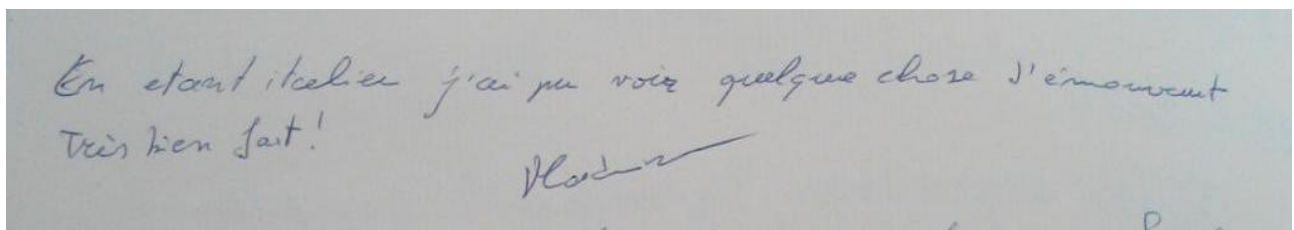 En etant italien j'ai pu voir quelque chose d'émouvant
Très bien fait!